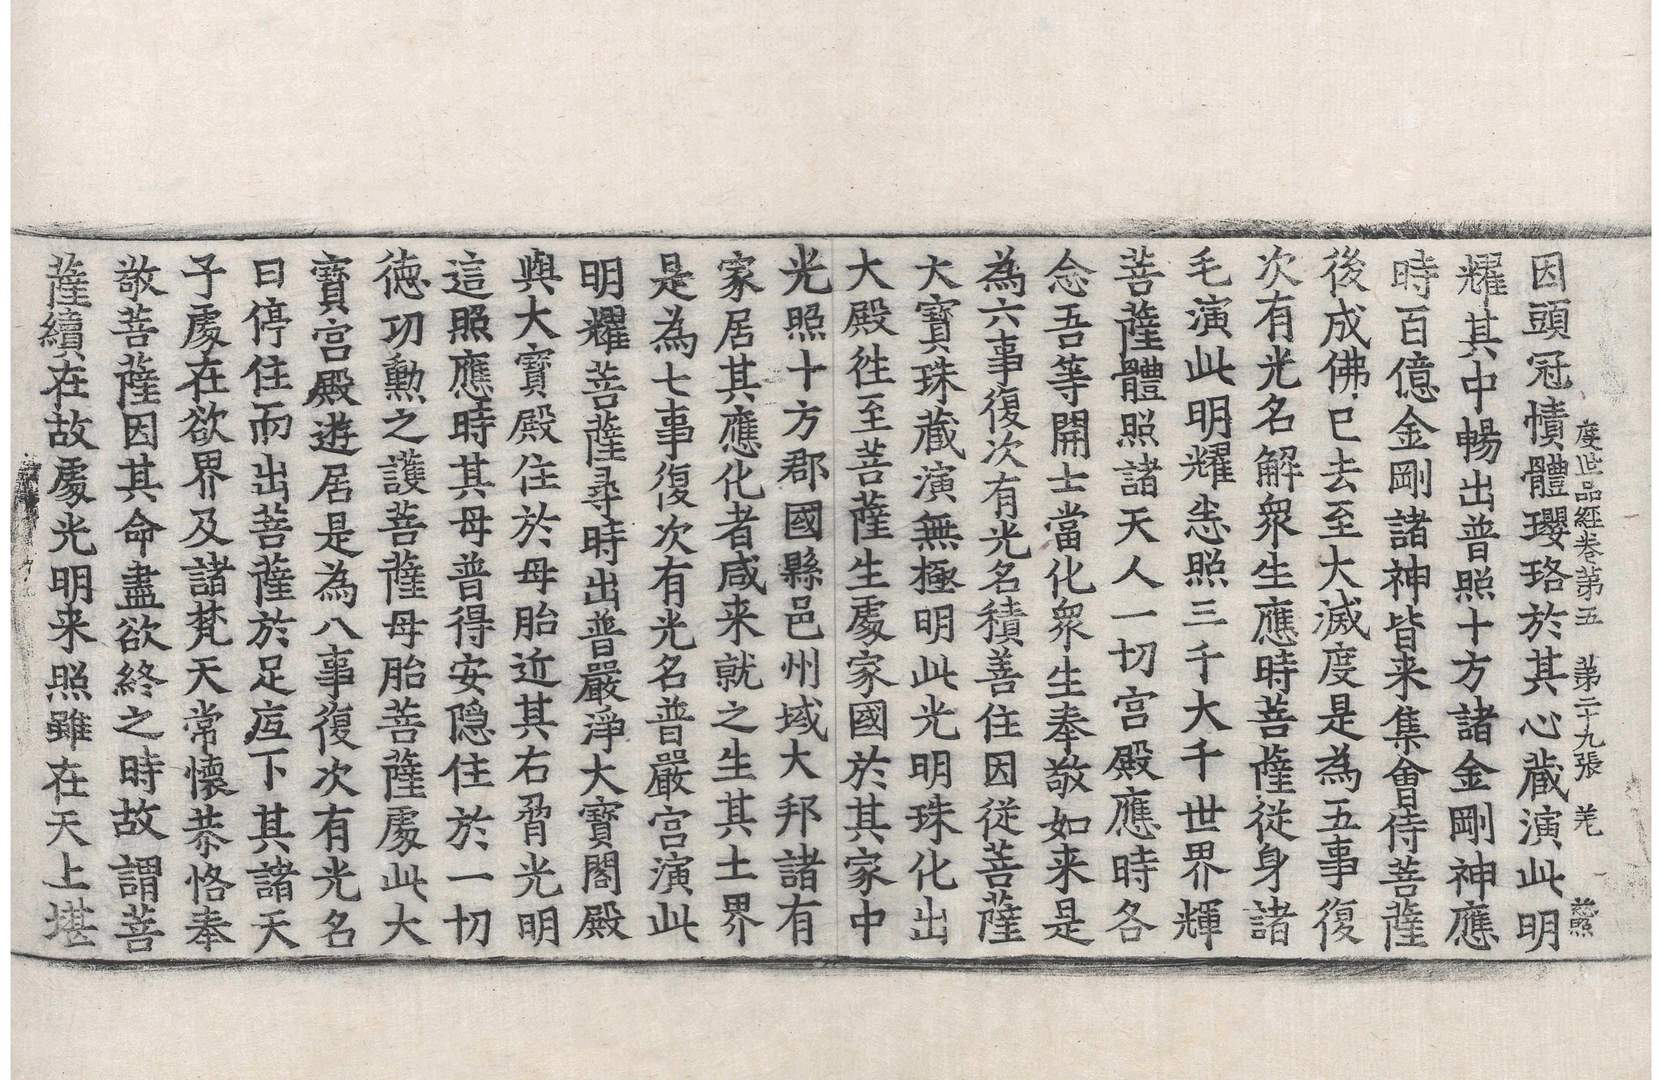 度世品經卷第五 第二十九張 羌
因頭冠幘體瓔珞於其心藏演此明
耀其中暢出普照十方諸金剛神應
時百億金剛諸神皆来集會侍菩薩
後成佛已去至大滅度是為五事復
次有光名解衆生應時菩薩從身諸
毛演此明耀悉照三千大千世界輝
菩薩體照諸天人一切宮殿應時各
念吾等開士當化衆生奉敬如来是
為六事復次有光名積善住因從菩薩
大寶珠藏演無極明此光明珠化出
大殿徃至菩薩生處家國於其家中
光照十方郡國縣邑州域大邦諸有
家居其應化者咸来就之生其土界
是為七事復次有光名普嚴宮演此
明耀菩薩尋時出普嚴淨大寶閣殿
與大寶殿住於母胎近其右脅光明
這照應時其母普得安隱住於一切
德功勳之護菩薩母胎菩薩處此大
寶宮殿遊居是為八事復次有光名
曰停住而出菩薩於足底下其諸天
子處在欲界及諸梵天常懷恭恪奉
敬菩薩因其命盡欲終之時故謂菩
薩續在故處光明来照雖在天上堪